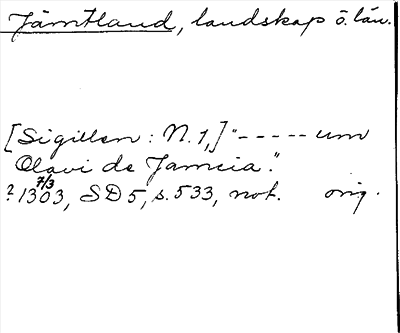 Jämtland, landskap o. län.
[Sigillen: N. 1,] "----- um
Olavi de Jamcia."
7/3
? 1303, SD 5, s. 533, not. orig.